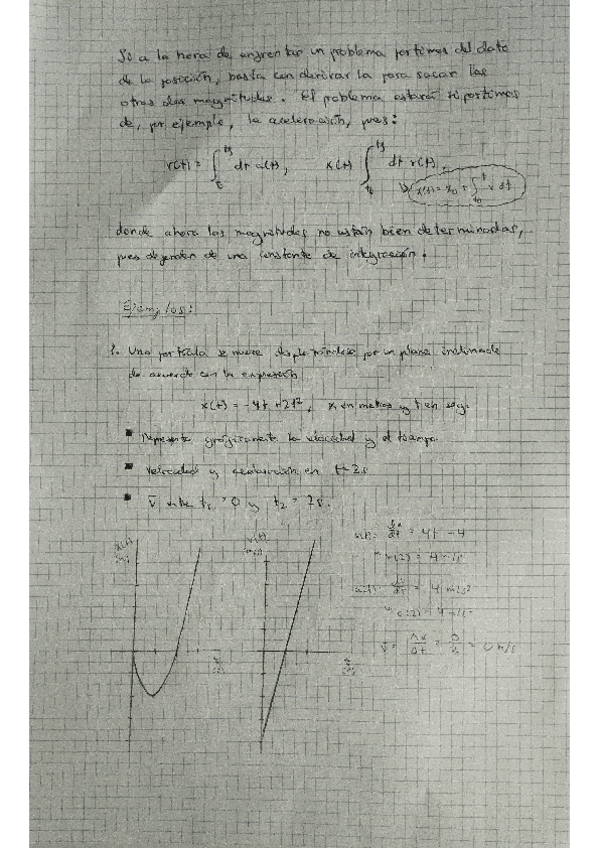 Si a la hora de enfrentar un problema partimos del dato
de la posición, basta con derivarla para sacar las
otras dos magnitudes. El problema estará si partimos
de, por ejemplo, la aceleración, pues:
v(t) = ∫ dt a(t), x(t) ∫ dt v(t),
x(t) = x₀ + ∫ v dt
donde ahora las magnitudes no están bien determinadas,
pues dependen de una constante de integración.
Ejemplos:
1. Una partícula se mueve por un plano inclinado
de acuerdo con la expresión
x(t) = -4t + 2t², x en metros y t en seg.
Represente gráficamente la velocidad y el tiempo.
Velocidad y aceleración en t=2s
v̄ entre t₁ = 0 y t₂ = 2s.
x(t)
v(t)
= 4t - 4
v(2) = 4 m/s
= 4 m/s²
a(2) = 4 m/s²
v̄ = Δx/Δt = 0/2 = 0 m/s